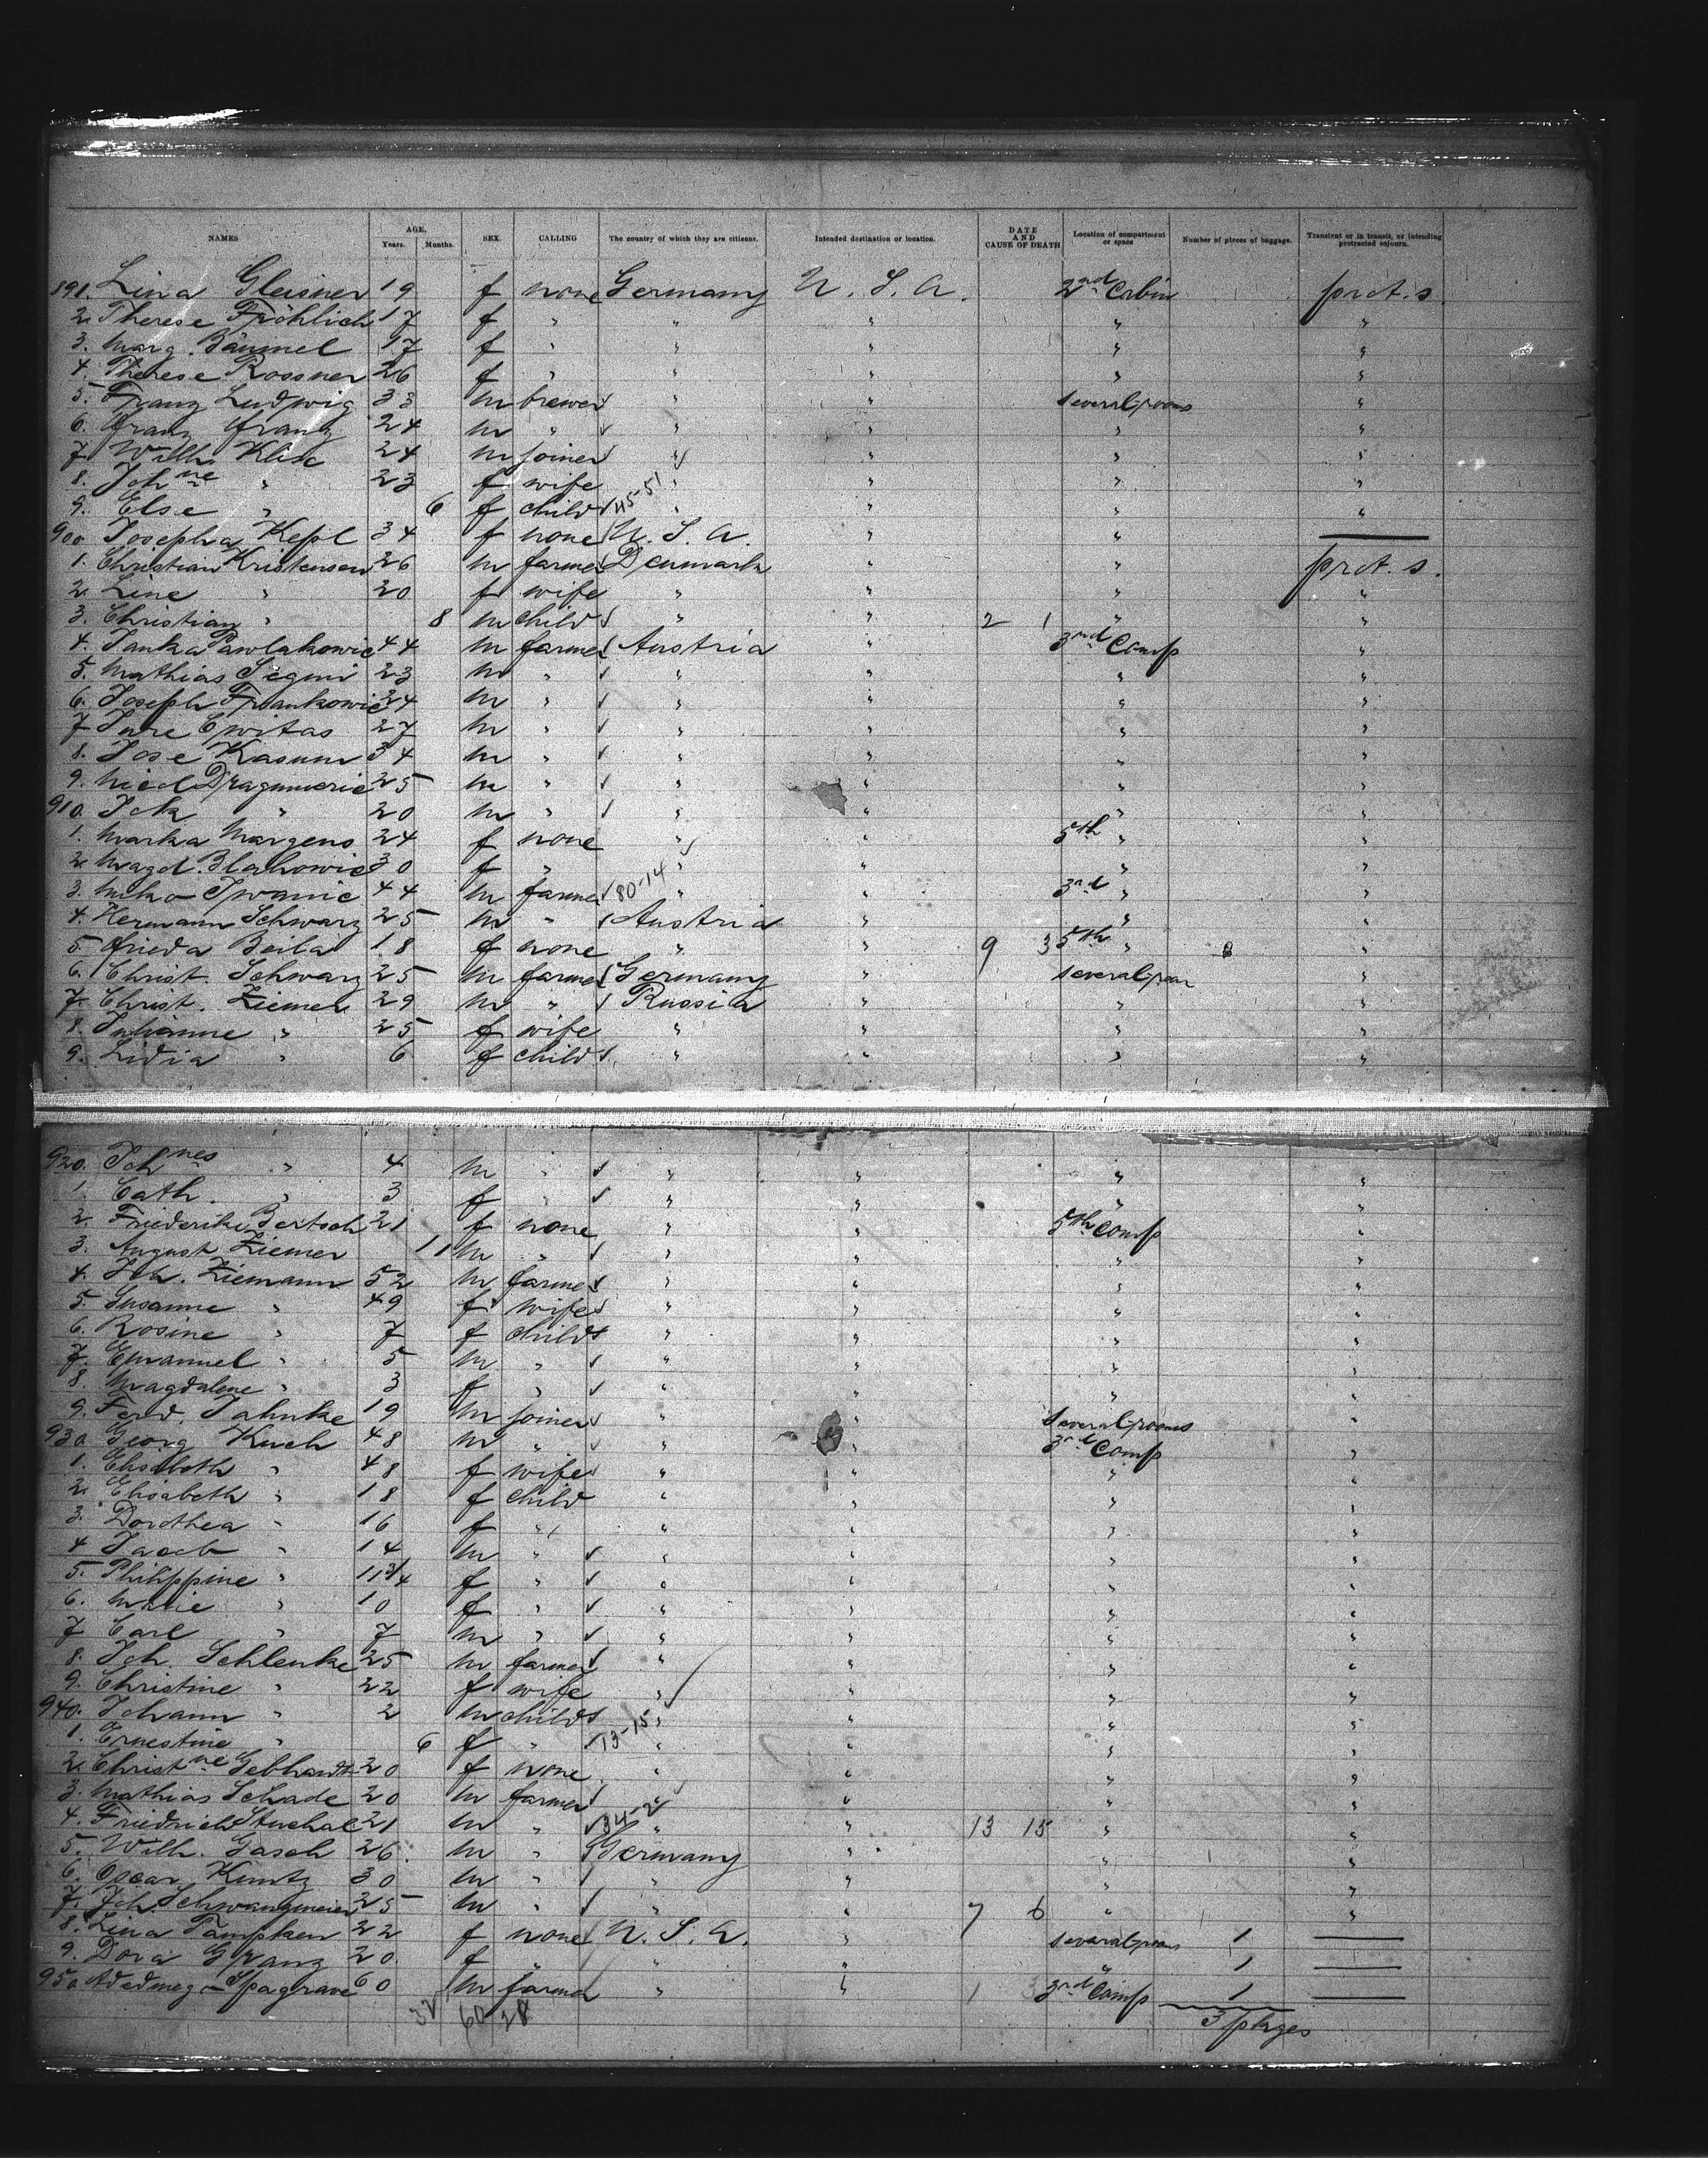 NAMES AGE. Years. Months. SEX. CALLING The country of which they are citizens. Intended destination or location. DATE AND CAUSE OF DEATH Location of compartment or space Number of pieces of baggage. Transient or in transit, or intending protracted sojourn.
891. Lina Gleisner 19 f none Germany U. S. A. 2nd Cabin prot. s.
2. Therese Fröhlich 17 f " " " " "
3. Marg. Bäumel 17 f " " " " "
4. Therese Rossner 26 f " " " " "
5. Franz Ludwig 33 m brewer " " several rooms "
6. Franz Franz 24 m " " " " "
7 Wilh. Klix 24 m joiner " " " "
8. Johne " 23 f wife " " " "
9. Else " 6 f child 45-51 " " " "
900 Josepha Kepl 34 f none U. S. A. " " —
1. Christian Kristensen 26 m farmer Denmark " " prot. s.
2. Line " 20 f wife " " " "
3. Christian " 8 m child " " 2 1 " "
4. Janka Pawlakowic 44 m farmer Austria " 3rd Comp "
5. Mathias 23 m " " " " "
6. Joseph Frankowic 24 m " " " " "
7 Jure Cwitas 27 m " " " " "
8. Jose Kasum 34 m " " " " "
9. Nicol Dragumeric 25 m " " " " "
910. Jok " 20 m " " " " "
1. Marka Margens 24 f none " " 5th " "
2. Magd. 30 f " " " " "
3. Miko Iwanic 44 m farmer 80-14 " " 3rd " "
4. Hermann Schwarz 25 m " Austria " " "
5. Frieda Beila 18 f none " " 9 3 5th " "
6. Christ. Schwarz 25 m farmer Germany " several room "
7. Christ. Ziemer 29 m " Russia " " "
8. Julianne " 25 f wife " " " "
9. Lidia " 6 f child " " " "
920. Johnes " 4 m " " " " "
1. Cath. " 3 f " " " " "
2. Friederike Bertsch 21 f none " " 5th Comp "
3. August Ziemer 11 m " " " " "
4. Joh. Ziemann 52 m farmer " " " "
5. Susanne " 49 f wife " " " "
6. Rosine " 7 f child " " " "
7. Emanuel " 5 m " " " " "
8. Magdalene " 3 f " " " " "
9. Ferd. Jahnke 19 m joiner " " several rooms "
930 Georg Kuch 48 m " " " 3rd Comp "
1. Elisabeth " 48 f wife " " " "
2. Elisabeth " 18 f child " " " "
3. Dorothea " 16 f " " " " "
4 Jacob " 14 m " " " " "
5. Philippine " 11 3/4 f " " " " "
6. Marie " 10 f " " " " "
7 Carl " 7 m " " " " "
8. Joh. Schlenke 25 m farmer " " " "
9. Christine " 22 f wife " " " "
940. Johann " 2 m child " " " "
1. Ernestine " 6 f " 13-15 " " " "
2. Christne Gebhardt 20 f none " " " "
3. Mathias Schade 20 m farmer " " " "
4. Friedrich 21 m " 34-2 " " 13 15 " "
5. Wilh. Gasch 26 m " Germany " " "
6. Oscar Kuntz 30 m " " " " "
7. Joh. Schwangmeier 25 m " " " 7 6 " "
8. Lina Tampken 22 f none U. S. A. " several rooms 1 —
9. Dora Granz 20 f " " " " 1 —
950 60 m farmer " " 1 3 3rd Comp 1 —
32 60/28 3 pkges